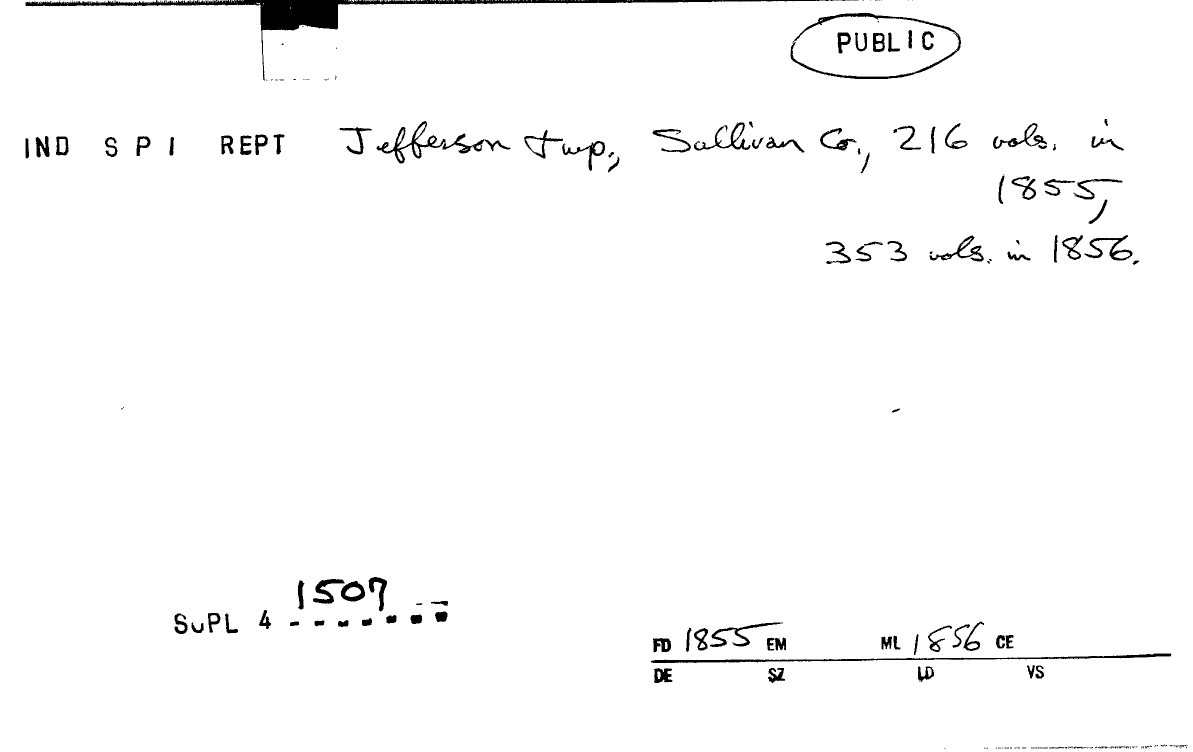 PUBLIC
IND S P I REPT Jefferson twp., Sullivan Co., 216 vols. in
1855,
353 vols. in 1856.
SUPL 4 1507
FD 1855 EM ML 1856 CE
DE SZ LD VS